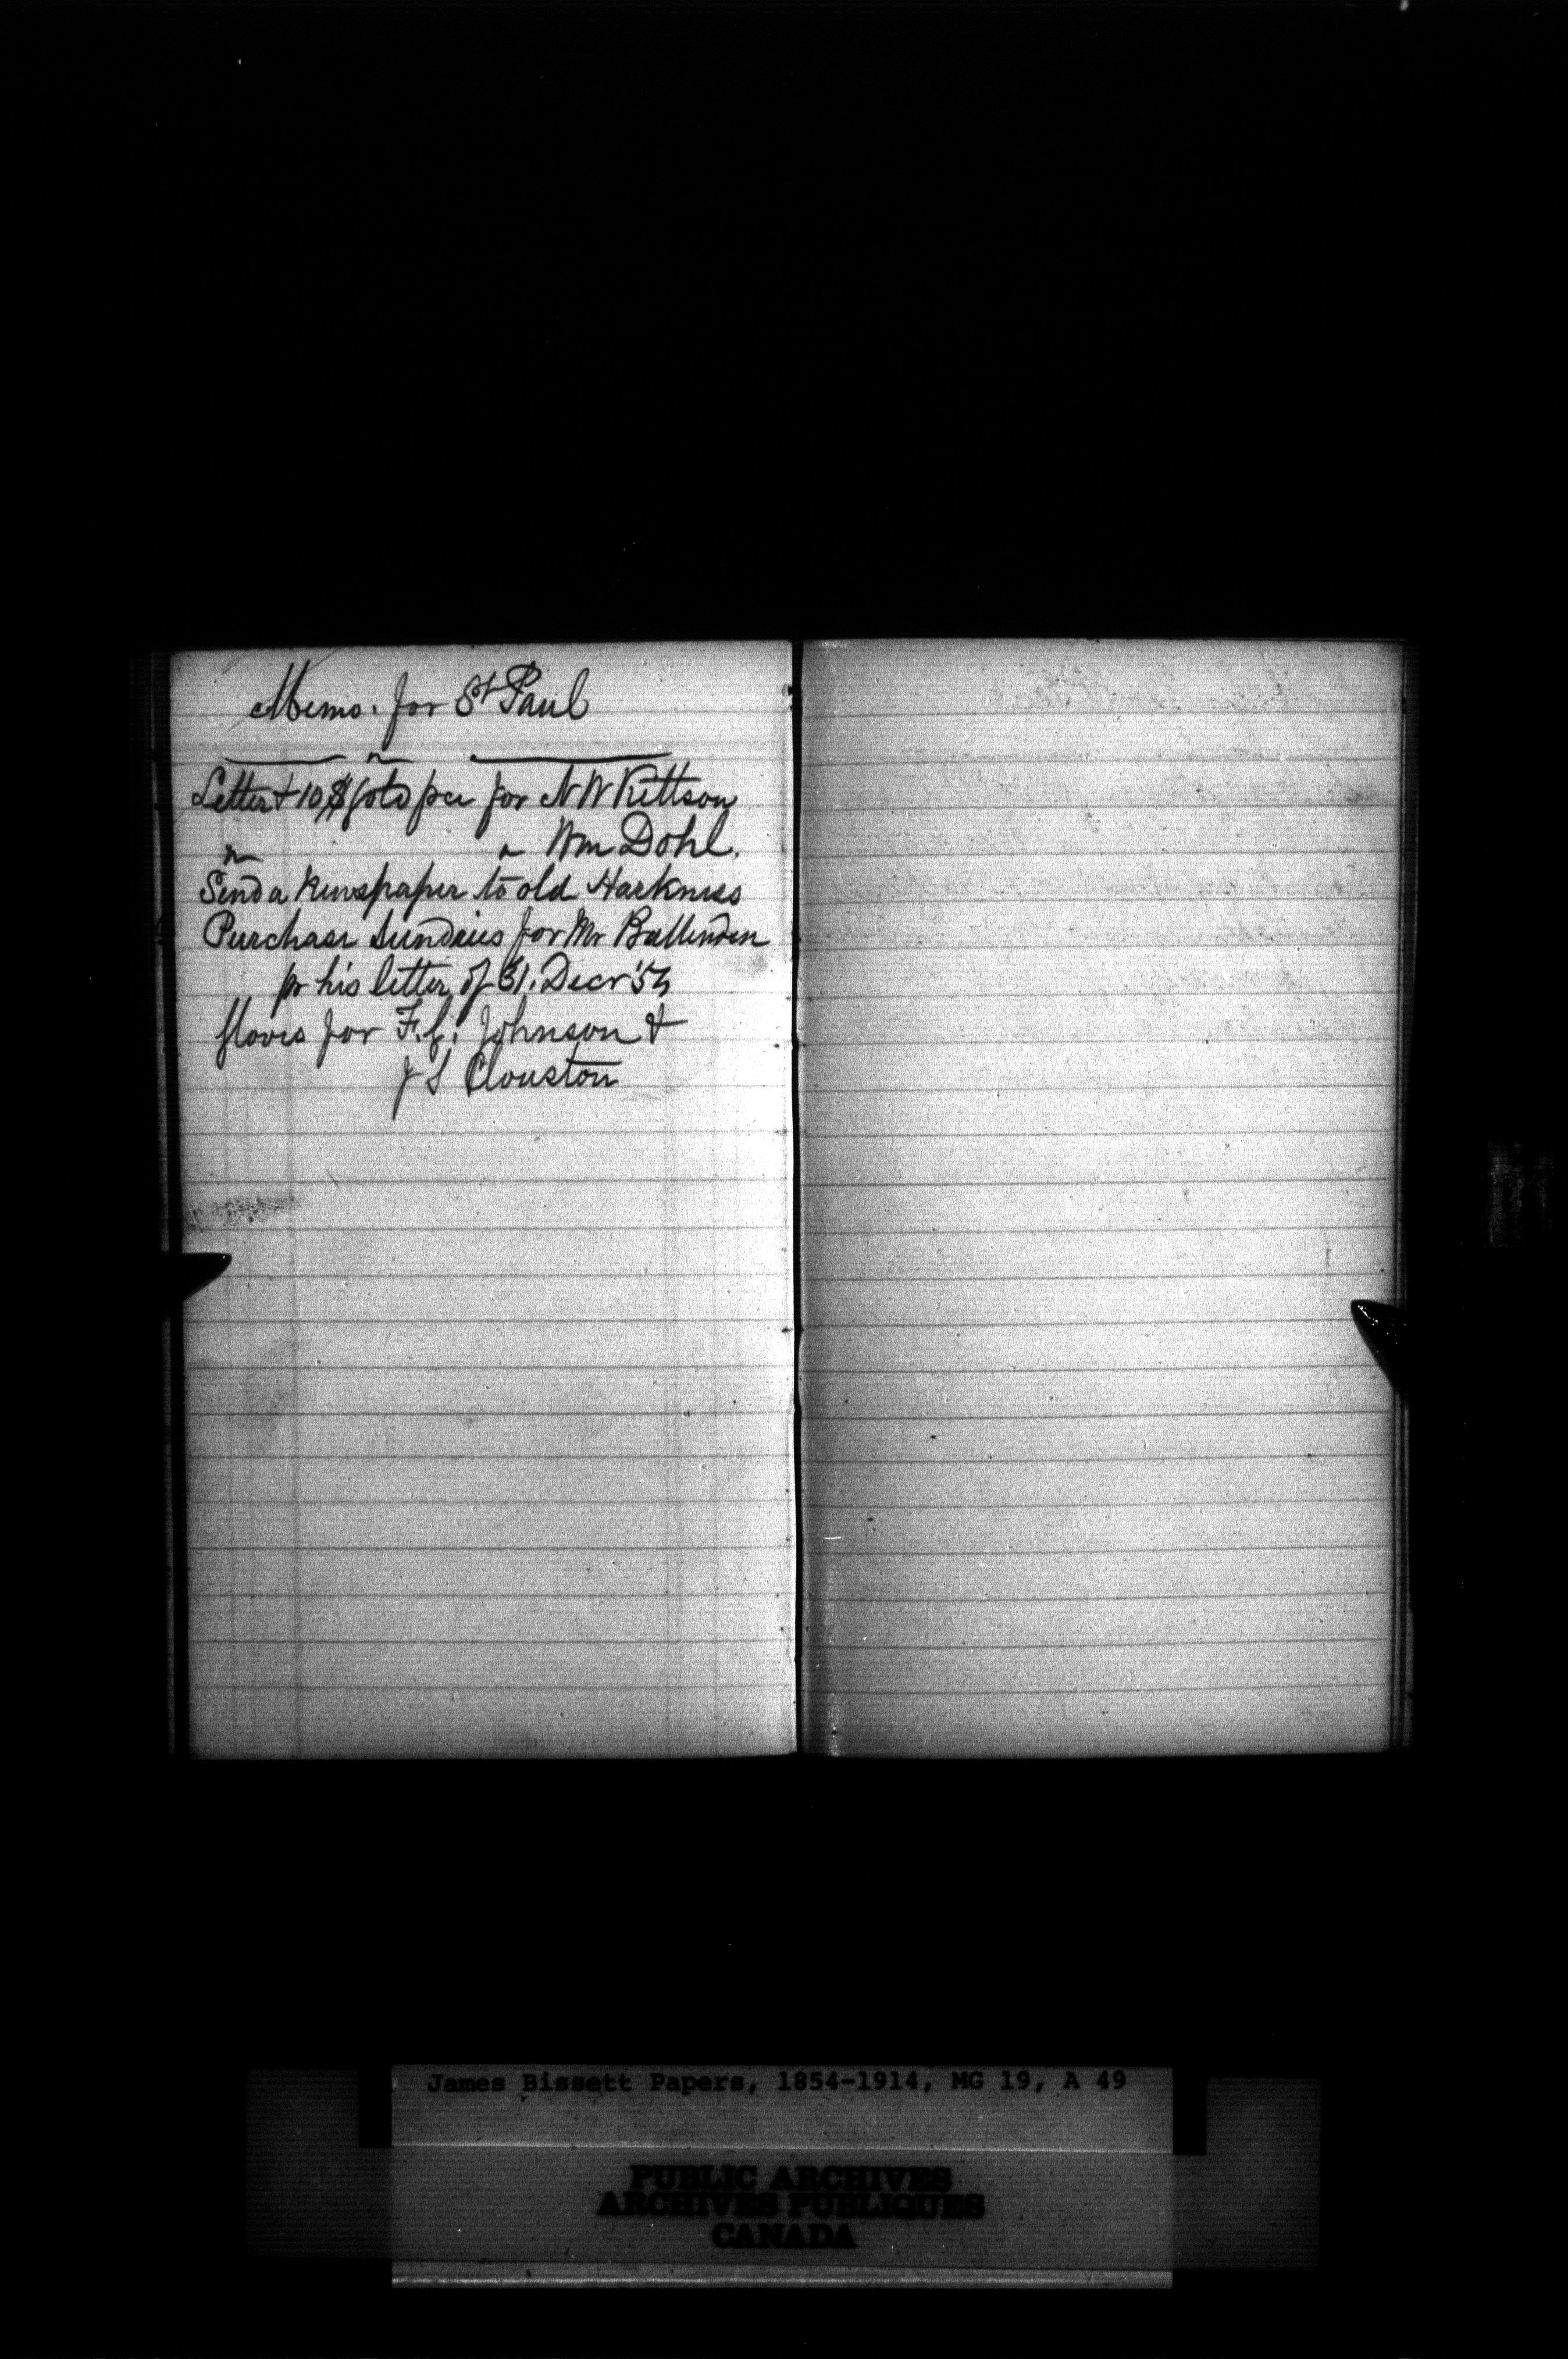 Memo. for St Paul
Letter & 10$ gold pce for N W Kittson
" " Wm Dohl.
Send a Newspaper to old Harkness
Purchase Sundries for Mr Ballenden
pr his letter of 31. Decr '54
for F. G. Johnson &
J S Clouston
James Bissett Papers, 1854-1914, MG 19, A 49
PUBLIC ARCHIVES
ARCHIVES PUBLIQUES
CANADA